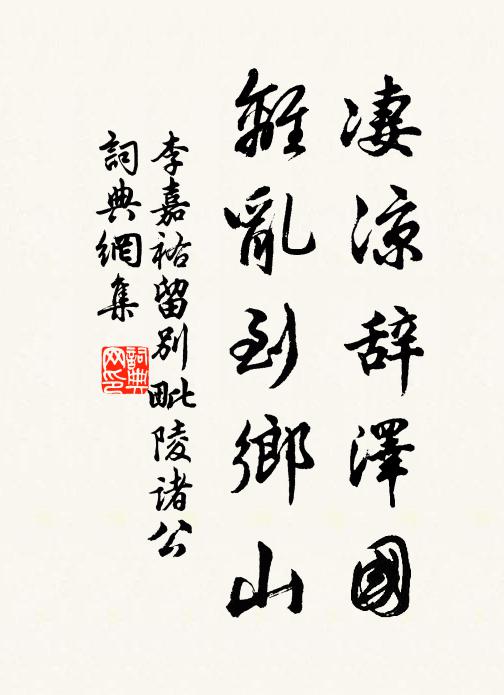 凄凉辞澤國
離亂到鄉山
李嘉祐留別毗陵諸公
詞典網集
詞典网印